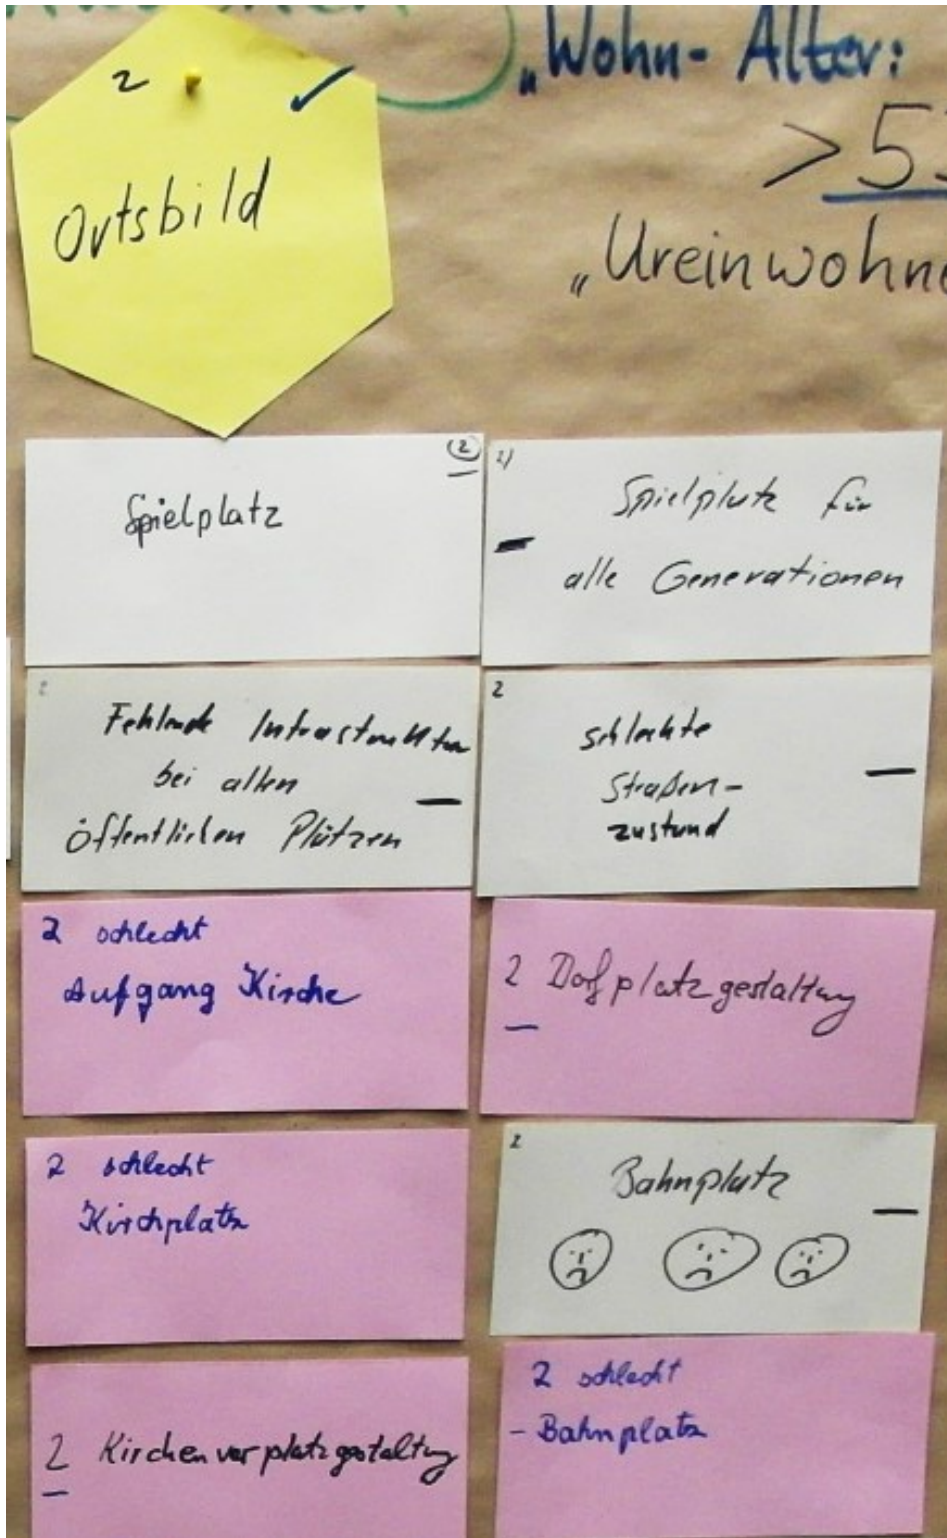 „Wohn-Alter:
2
>
Ortsbild
2
Spielplatz
2)
Spielplatz für
–
alle Generationen
2
Fehlende Infrastruktur
bei allen
–
öffentlichen Plätzen
2
schlechte
Straßen-
–
zustand
2 schlecht
Aufgang Kirche
2 Dorfplatzgestaltung
–
2 schlecht
Kirchplatz
2
Bahnplatz
–
2 Kirchenvorplatzgestaltung
–
2 schlecht
- Bahnplatz